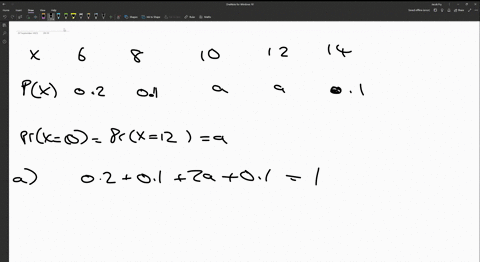 x 6 8 10 12 14
P(x) 0.2 0.1 a a 0.1
Pr(x=10) = Pr(x=12) = a
a) 0.2 + 0.1 + 2a + 0.1 = 1